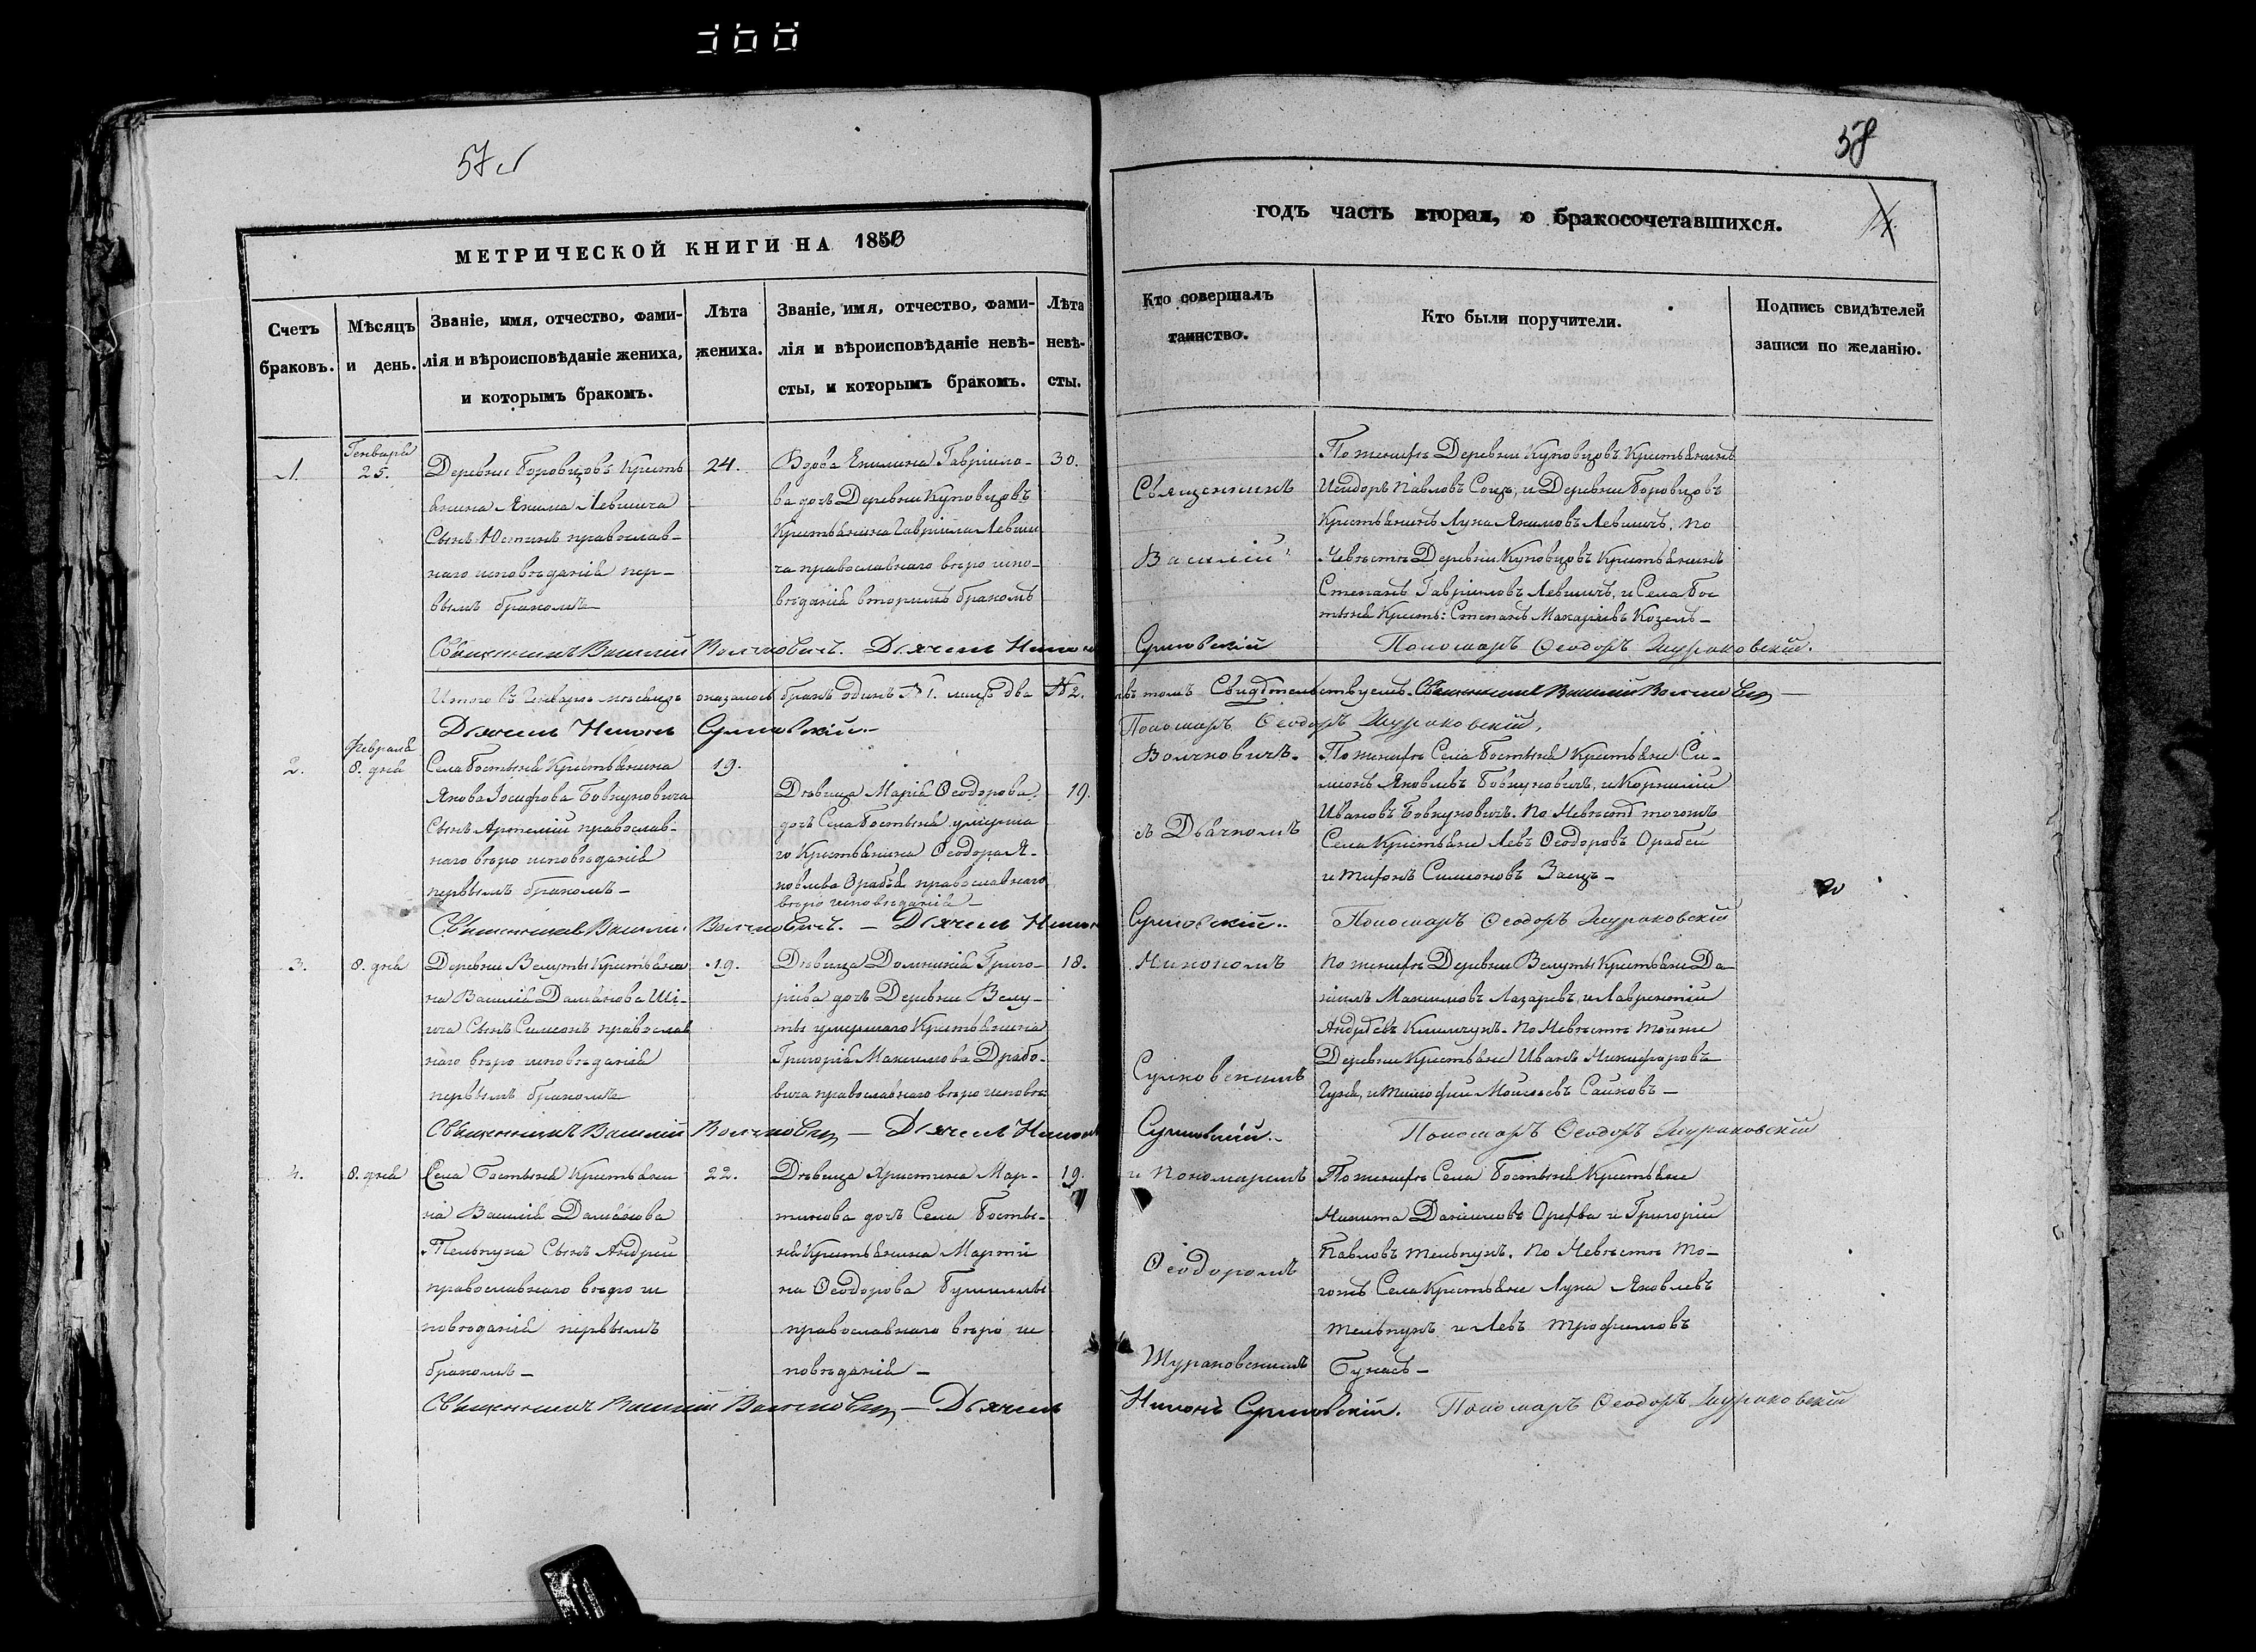 57
58
14.
МЕТРИЧЕСКОЙ КНИГИ НА 1856
годъ часть вторая, о бракосочетавшихся.
Счетъ браковъ.
Мѣсяцъ и день.
Званіе, имя, отчество, фами-
лія и вѣроисповѣданіе жениха,
и которымъ бракомъ.
Лѣта жениха.
Званіе, имя, отчество, фами-
лія и вѣроисповѣданіе невѣ-
сты, и которымъ бракомъ.
Лѣта невѣ-
сты.
Кто совершалъ
таинство.
Кто были поручители.
Подпись свидѣтелей
записи по желанію.
1.
Генваря
25.
Деревни Боровцовъ Кресть
янина Якима Левшича
Сынъ Юстинъ православ-
наго исповѣданія пер-
вымъ бракомъ
24.
Вдова Гавріило-
ва дочь Деревни Куповцовъ
Крестьянина Гавріила Левши
ча православнаго вѣро испо-
вѣданія вторымъ бракомъ
30.
Священникъ
Василій
По женихѣ Деревни Куповцовъ Крестьянинъ
Исидоръ Павловъ и Деревни Боровцовъ
Крестьянинъ Лука Якимовъ Левшичъ. По
Невѣстѣ Деревни Куповцовъ Крестьянинъ
Степанъ Гавріиловъ Левшичъ, и Села Бос
тыня Кресть: Степанъ Макаріевъ Козелъ
Священникъ Василій Волчковичъ. Дьячекъ Никонъ Сулковскій Пономаръ Ѳеодоръ Шураковскій.
Итого въ Генварѣ мѣсяцѣ оказалось бракъ одинъ № 1. лицъ два № 2. въ томъ Свидѣтельствуемъ. Священникъ Василій Волчковичъ
Дьячекъ Никонъ Сулковскій. Пономаръ Ѳеодоръ Шураковскій.
2.
Февраля
8. дня
Села Бостыня Крестьянина
Якова Іосифова Бовкуновича
Сынъ Артемій православ-
наго вѣро исповѣданія
первымъ бракомъ
19.
Дѣвица Марія Ѳеодорова
дочь Села Бостыня умерша
го Крестьянина Ѳеодора Я-
ковлева православнаго
вѣро исповѣданія
19.
Волчковичъ.
съ Дьячкомъ
По женихѣ Села Бостыня Крестьяне Си-
меонъ Яковлевъ Бовкуновичъ, и Корнилій
Ивановъ Бовкуновичъ. По Невѣстѣ тогожъ
Села Крестьяне Левъ Ѳеодоровъ
и Симеоновъ Заецъ
Священникъ Василій Волчковичъ. Дьячекъ Никонъ Сулковскій. Пономаръ Ѳеодоръ Шураковскій
3.
8. дня
Деревни Велуты Крестьяни
на Василія Даміанова Ші-
ча Сынъ Симеонъ православ
наго вѣро исповѣданія
первымъ бракомъ
19.
Дѣвица Домникія Григо-
ріева дочь Деревни Велу-
ты умершаго Крестьянина
Григорія Максимова Драбо-
вича православнаго вѣро исповѣ
18.
Никономъ
Сулковскимъ
По женихѣ Деревни Велуты Крестьяне Да-
ніилъ Максимовъ Лазаревъ, и Лаврентій
Андреевъ Климчукъ. По Невѣстѣ тойже
Деревни Крестьяне Иванъ Никифоровъ
и Тимофей Моисѣевъ
Священникъ Василій Волчковичъ Дьячекъ Никонъ Сулковскій. Пономаръ Ѳеодоръ Шураковскій
4.
8. дня
Села Бостыня Крестьяни
на Василія Даміанова
Тельпука Сынъ Андрей
православнаго вѣро ис
повѣданія первымъ
бракомъ
22.
Дѣвица Христина Мар-
тинова дочь Села Босты-
ня Крестьянина Марти
на Ѳеодорова
православнаго вѣро ис
повѣданія
19.
и Пономаремъ
Ѳеодоромъ
Шураковскимъ
По женихѣ Села Бостыня Крестьяне
Никита Даніиловъ и Григорій
Павловъ Тельпукъ. По Невѣстѣ то-
гожъ Села Крестьяне Лука Яковлевъ
Тельпукъ и Левъ Трофимовъ
Священникъ Василій Волчковичъ Дьячекъ Никонъ Сулковскій. Пономаръ Ѳеодоръ Шураковскій